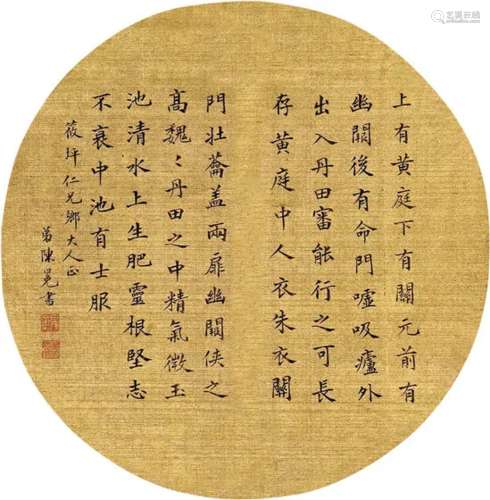 上有黄庭下有關元前有
幽闕後有命門噓吸廬外
出入丹田審能行之可長
存黄庭中人衣朱衣關
門壯蘥盖兩扉幽闕俠之
髙魏〻丹田之中精氣微玉
池清水上生肥靈根堅志
不衰中池有士服
莜坪仁兄鄉大人正
弟陳冕書
艺美网一点